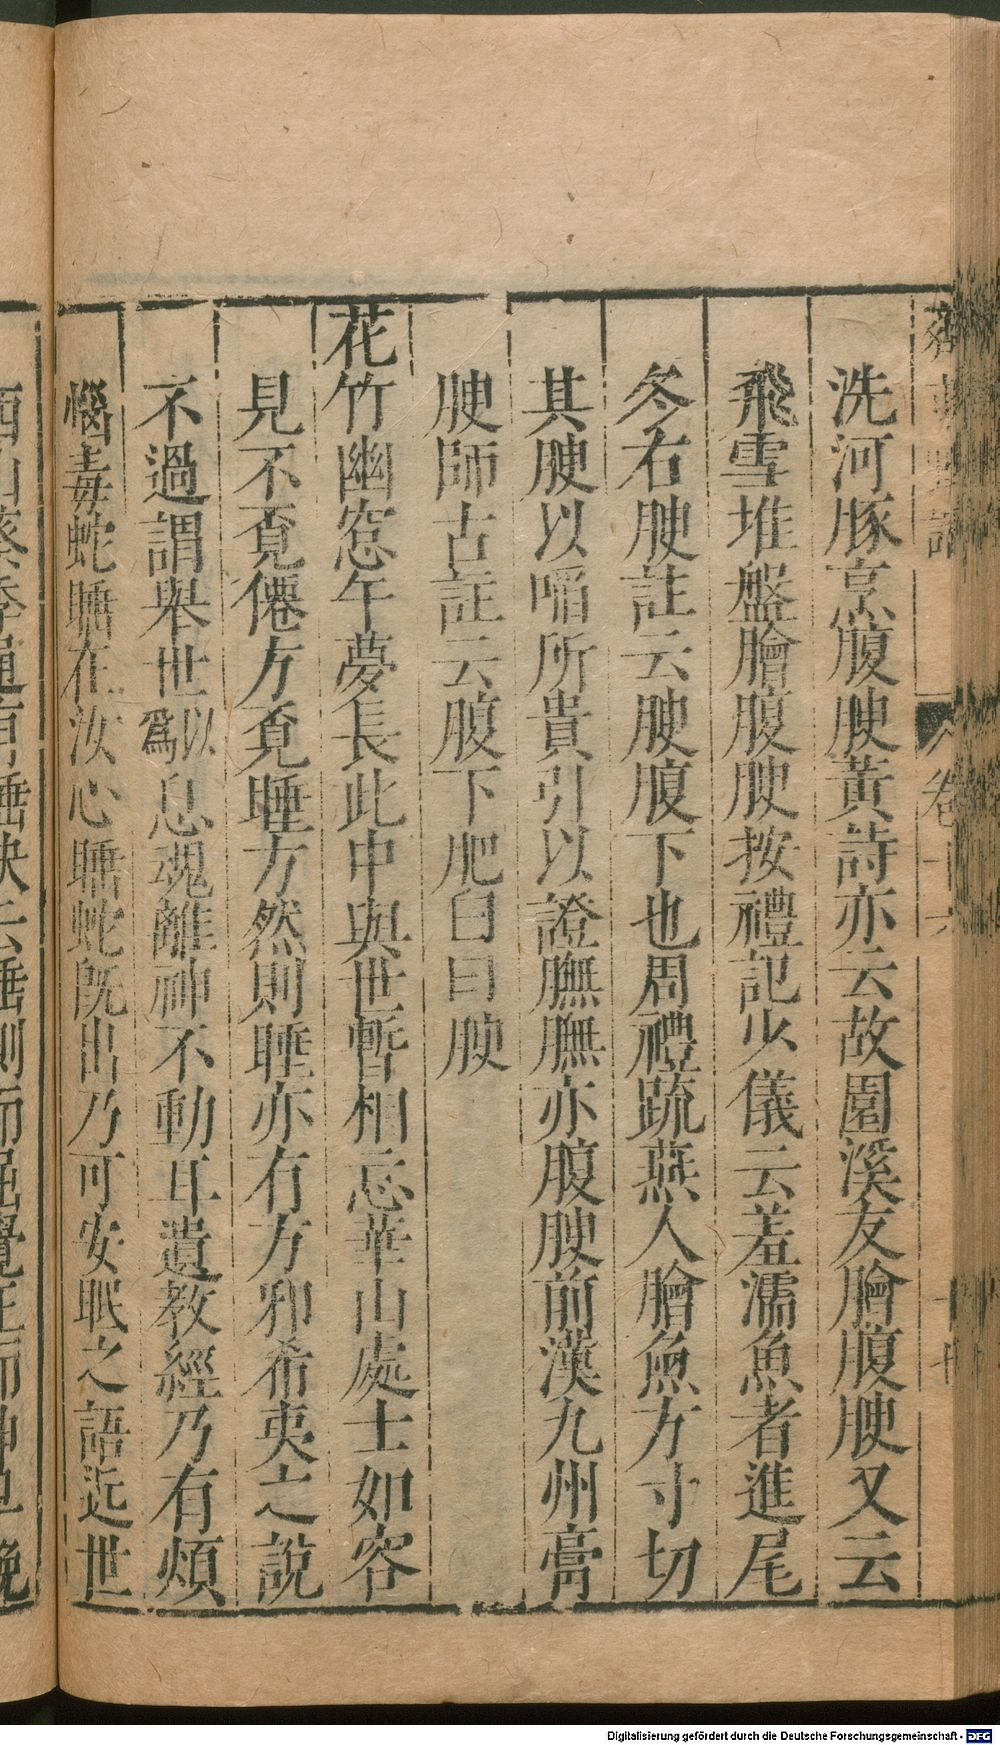 洗河豚烹腹腴黃詩亦云故園溪友膾腹腴又云
飛雪堆盤膾腹腴按禮記少儀云羞濡魚者進尾
冬右腴註云腴腹下也周禮疏燕人膾魚方寸切
其腴以啗所貴引以證膴膴亦腹腴前漢九州膏
腴師古註云腹下肥曰曰腴
花竹幽窓午夢長此中與世暫相忘華山處士如容
見不覔僊方覔睡方然則睡亦有方邪希夷之說
不過謂舉世以爲息魂離神不動耳遺教經乃有煩
惱毒蛇睡在汝心睡蛇既出乃可安眠之語近世
西山蔡季通有睡訣云睡側而屈覺正而伸早晚
Digitalisierung gefördert durch die Deutsche Forschungsgemeinschaft - DFG